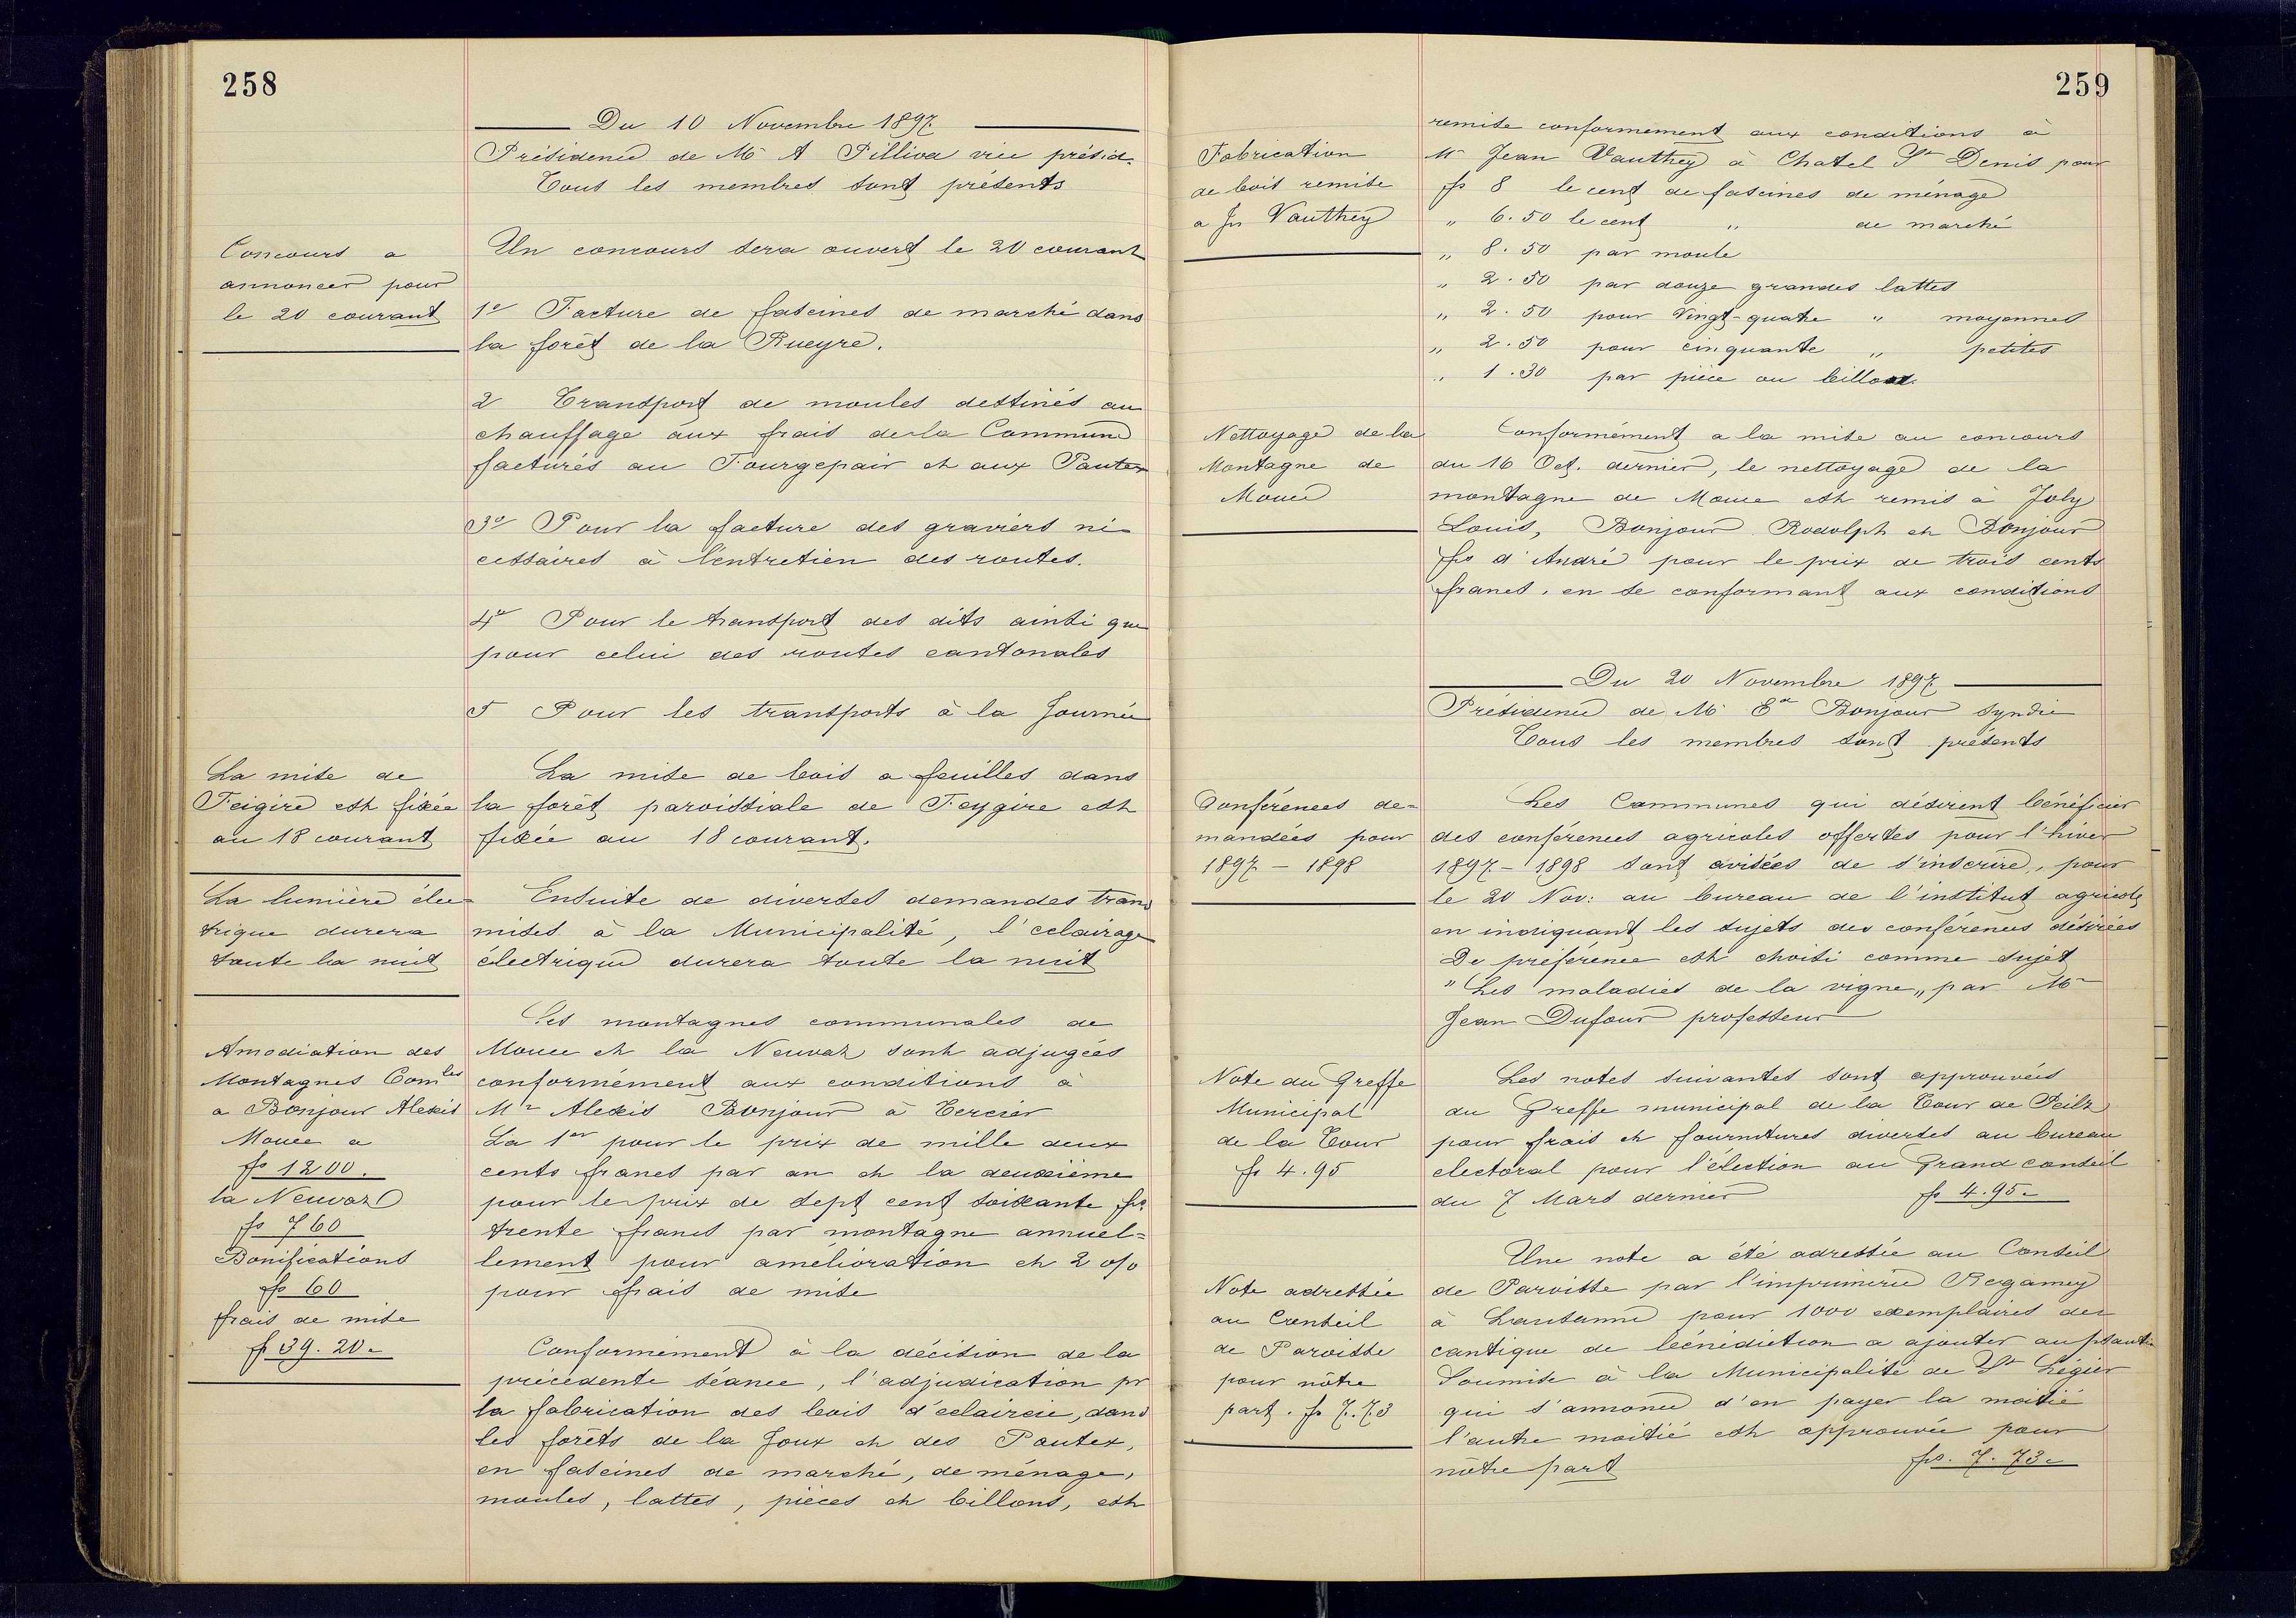 258
Du 10 Novembre 1897.
Présidence de Mr A Pilliod vice présid.
Tous les membres sont présents
Concours a
annoncer pour
le 20 courant
Un concours sera ouvert le 20 courant
1o Facture de fascines de marché dans
la forêt de la Rueyre.
2 Transport de moules destinés au
chauffage aux frais de la Commune
facturés au Fourgepair et aux Pautex
3o Pour la facture des graviers né
cessaires à l'entretien des routes.
4o Pour le transport des dits ainsi que
pour celui des routes cantonales
5 Pour les transports à la Journée
La mise de
Feigire est fixée
au 18 courant
La mise de bois a feuilles dans
la forêt paroissiale de Feygire est
fixée au 18 courant.
La lumière élec=
trique durera
toute la nuit
Ensuite de diverses demandes trans
mises à la Municipalité, l'eclairage
électrique durera toute la nuit
Amodiation des
Montagnes Comles
a Bonjour Alexis
Mouce a
fs 1200.
la Neuvaz
fs 760
Bonifications
fs 60
frais de mise
fs 39.20
Les montagnes communales de
Mouce et la Neuvaz sont adjugées
conformément aux conditions à
Mr Alexis Bonjour à Tercier
La 1er pour le prix de mille deux
cents francs par an et la deuxième
pour le prix de sept cent soixante frs
trente francs par montagne annuel=
lement pour amélioration et 2 o/o
pour frais de mise
Conformément à la décision de la
précédente séance, l'adjudication pr
la fabrication des bois d'eclaircie, dans
les forêts de la Joux et des Pautex,
en fascines de marché, de ménage,
moules, lattes, pièces et billons, est
259
Fabrication
de bois remise
a Jn Vauthey
remise conformement aux conditions à
Mr Jean Vauthey à Chatel St Denis pour
fs 8 le cent de fascines de ménage
" 6.50 le cent " de marché
" 8.50 par moule
" 2.50 par douze grandes lattes
" 2.50 pour vingt-quatre " moyennes
" 2.50 pour cinquante " petites
" 1.30 par pièce ou billon.
Nettoyage de la
Montagne de
Mouce
Conformément a la mise au concours
du 16 Oct. dernier, le nettoyage de la
montagne de Mouce est remis à Joly
Louis, Bonjour Rodolph et Bonjour
fs d'André pour le prix de trois cents
francs, en se conformant aux conditions
Du 20 Novembre 1897
Présidence de Mr Ed Bonjour Syndic
Tous les membres sont présents
Conférences de=
mandées pour
1897 - 1898
Les Communes qui désirent bénéficier
des conférences agricoles offertes pour l'hiver
1897 - 1898 sont avisées de s'inscrire, pour
le 20 Nov: au bureau de l'institut agricole
en indiquant les sujets des conférences désirées
De préférence est choisi comme sujet
"Les maladies de la vigne„ par Mr
Jean Dufour professeur
Note du Greffe
Municipal
de la Tour
fs 4.95
Les notes suivantes sont approuvées
du Greffe municipal de la Tour de Peilz
pour frais et fournitures diverses au bureau
electoral pour l'élection au Grand conseil
du 7 Mars dernier fs 4.95
Note adressée
au Conseil
de Paroisse
pour nôtre
part. fs 7.73
Une note a été adressée au Conseil
de Paroisse par l'imprimerie Regamey
à Lausanne pour 1000 exemplaires du
cantique de bénédiction a ajouter au psautier
Soumise à la Municipalité de St Légier
qui s'annonce d'en payer la moitié
l'autre moitié est approuvée pour
nôtre part frs. 7.73